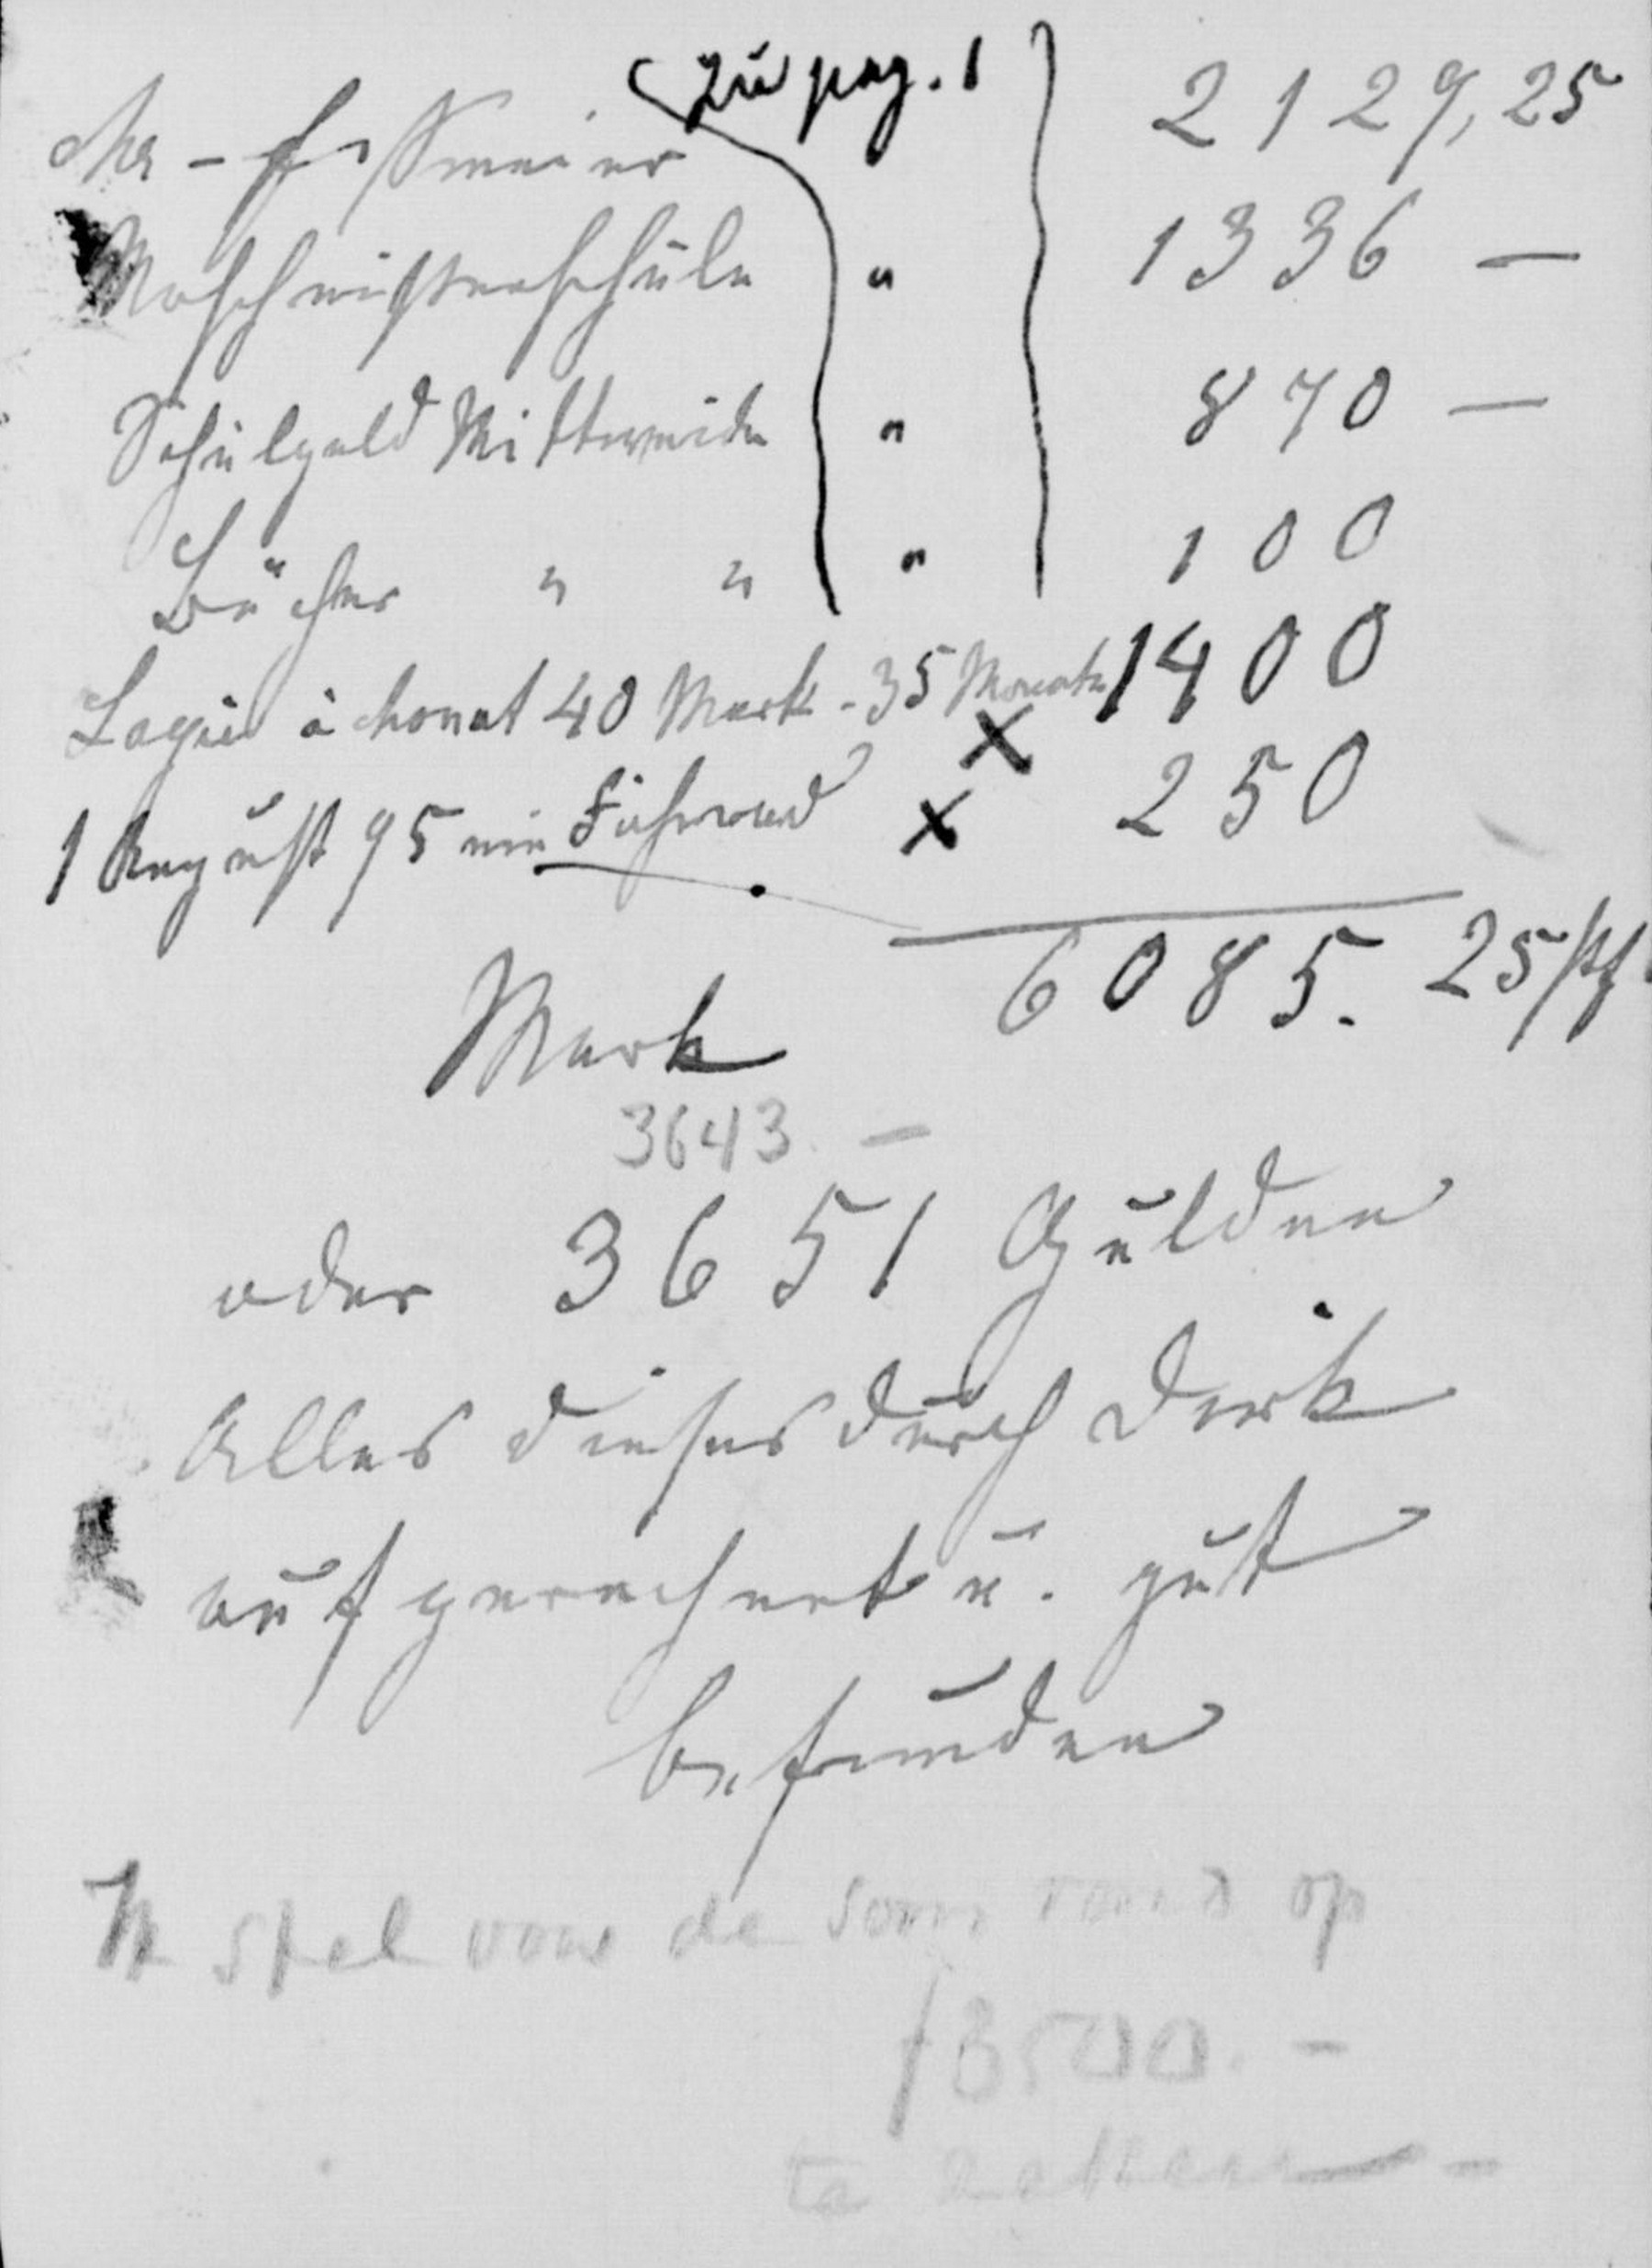 zu pag. 1
2129,25
Maschinistenschule " 1336 —
Schulgeld Mittweida " 870 —
Bücher " " " 100
Logis à Monat 40 Mark - 35 Monate 1400
x
1 August 95 ein Fahrrad x 250
6085. 25 Pf
Mark
3643. —
oder 3651 Gulden
Alles dieses durch Dirk
aufgerechnet u. gut
befunden
Ik stel voor de som rond op
f 3500. —
te